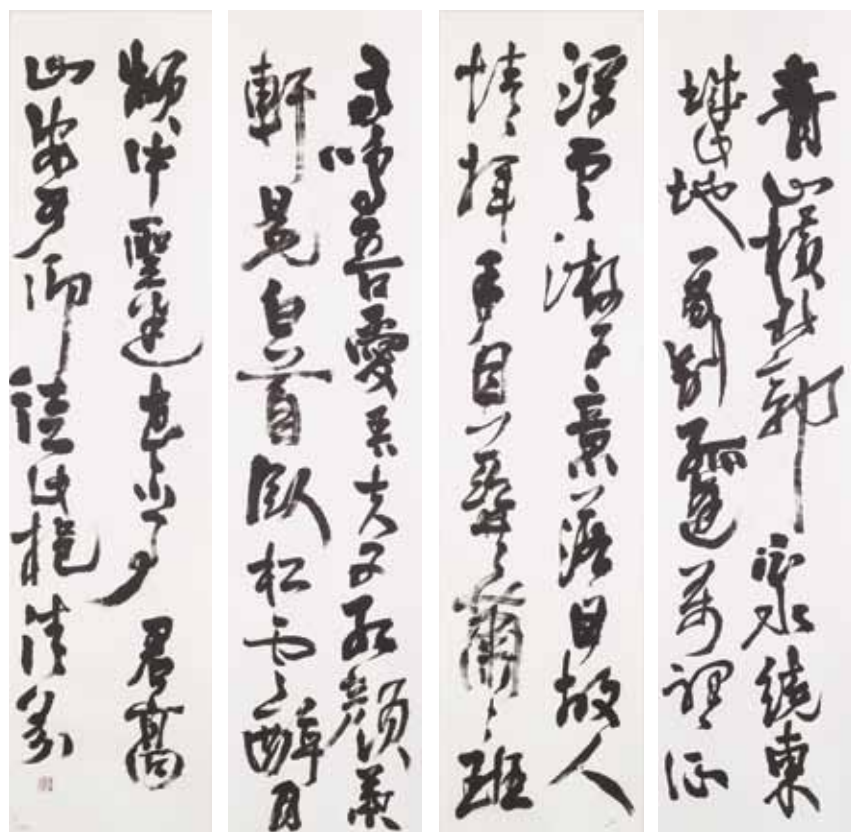 青山橫北郭白水繞東
城此地一為別孤蓬萬里征
浮雲遊子意落日故人
情揮手自茲去蕭々班
馬鳴吾愛孟夫子紅顏棄
軒冕白首臥松雲醉月
頻中聖迷花不事君高
山安可仰徒此挹清芬